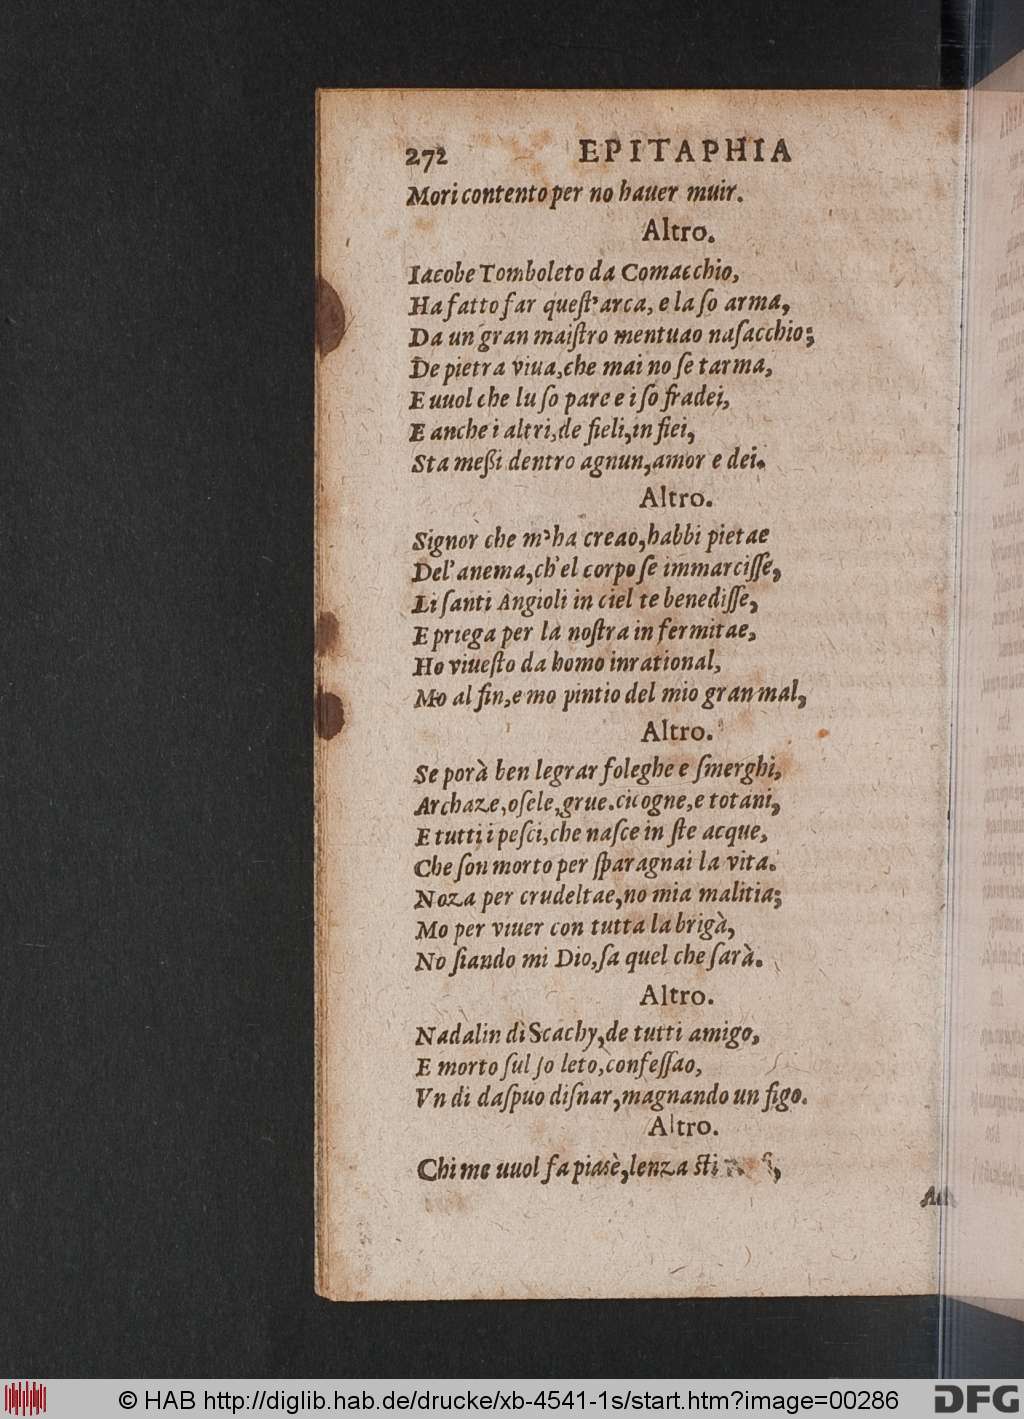 272 EPITAPHIA
Mori contento per no hauer muir.
Altro.
Iacobe Tomboleto da Comacchio,
Ha fatto far queſt'arca, e la ſo arma,
Da un gran maiſtro mentuao naſacchio;
De pietra viua, che mai no ſe tarma,
E uuol che lu ſo pare e i ſo fradei,
E anche i altri, de fieli, in fiei,
Sta meßi dentro agnun, amor e dei.
Altro.
Signor che m'ha creao, habbi pietae
Del'anema, ch'el corpo ſe immarciſſe,
Li ſanti Angioli in ciel te benediſſe,
E priega per la noſtra in fermitae,
Ho viueſto da homo inrational,
Mo al fin, e mo pintio del mio gran mal,
Altro.
Se porà ben legrar foleghe e ſmerghi,
Archaze, oſele, grue. cicogne, e totani,
E tutti i peſci, che naſce in ſte acque,
Che ſon morto per ſparagnai la vita.
Noza per crudeltae, no mia malitia;
Mo per viuer con tutta la brigà,
No ſiando mi Dio, ſa quel che ſarà.
Altro.
Nadalin di Scachy, de tutti amigo,
E morto ſul ſo leto, confeſſao,
Vn di daſpuo diſnar, magnando un figo.
Altro.
Chi me uuol fa piasè, lenza ſti
© HAB http://diglib.hab.de/drucke/xb-4541-1s/start.htm?image=00286
DFG